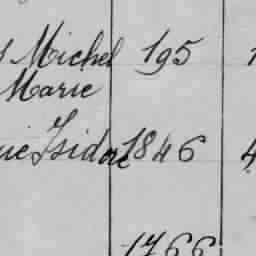 Michel 195
Marie
Isidore 1846 4
1766